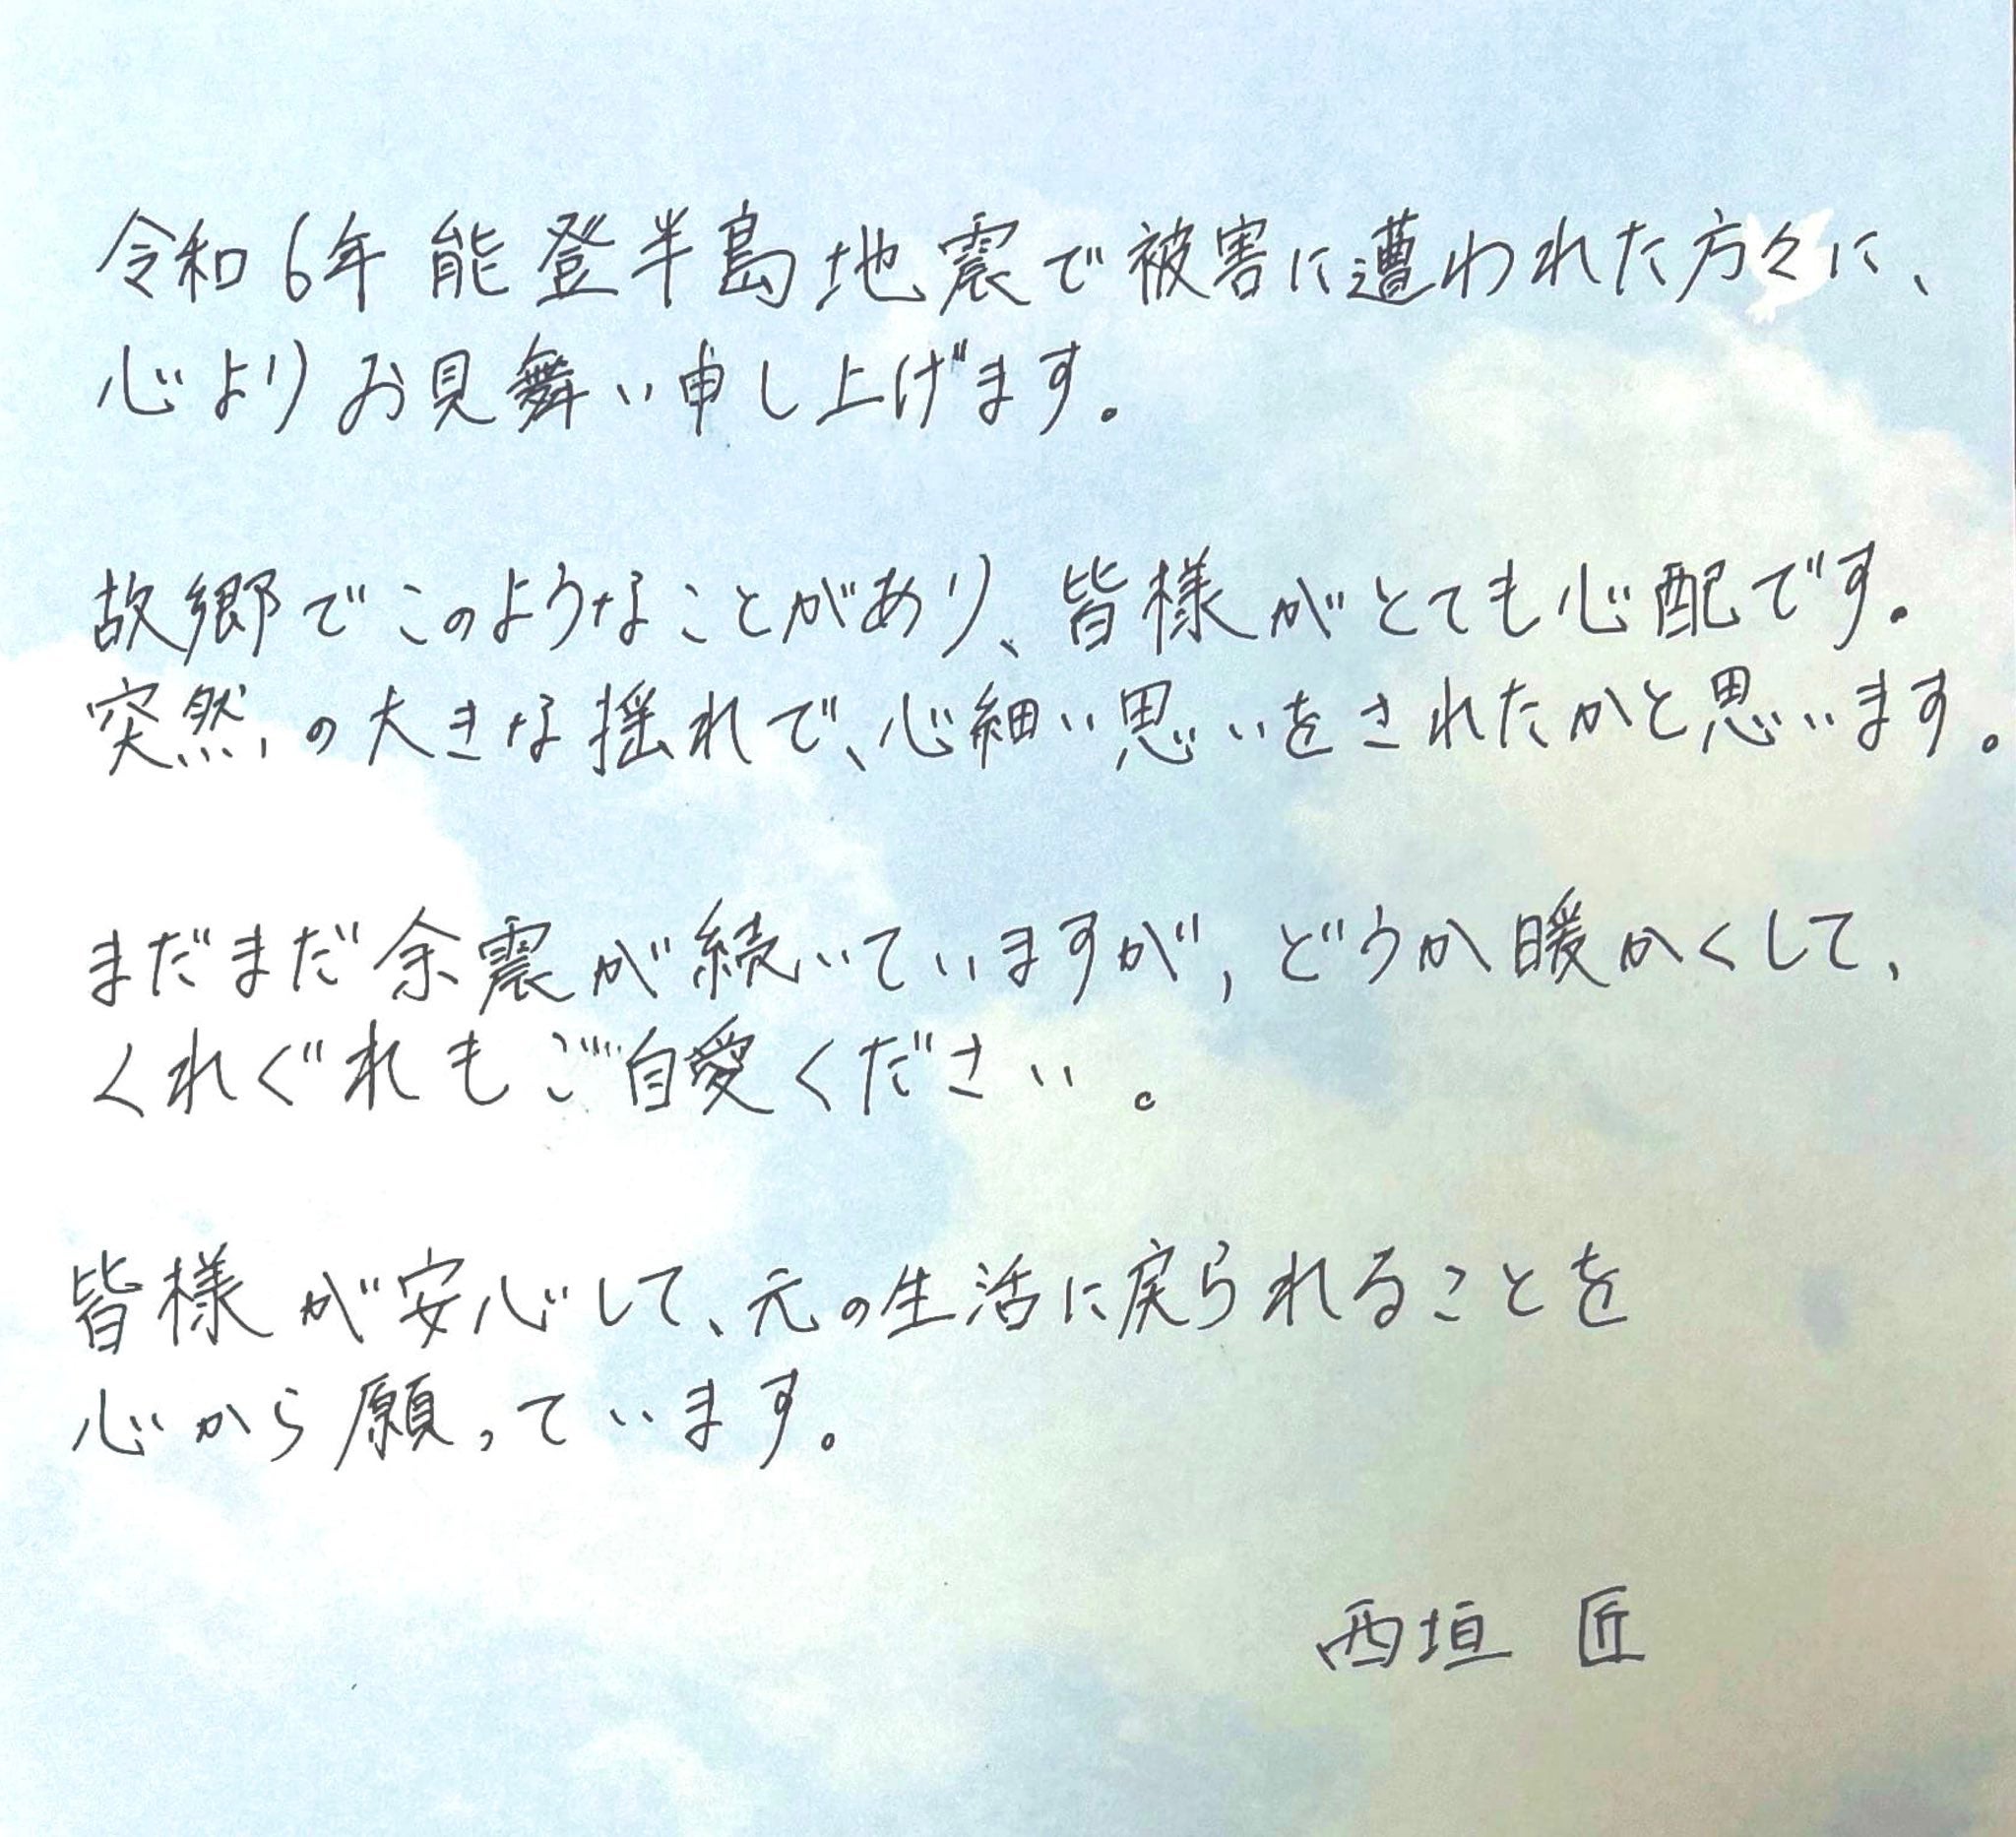 令和6年 能登半島地震で被害に遭われた方々に、
心よりお見舞い申し上げます。
故郷でこのようなことがあり、皆様がとても心配です。
突然の大きな揺れで、心細い思いをされたかと思います。
まだまだ余震が続いていますが、どうか暖かくして、
くれぐれもご自愛ください。
皆様が安心して、元の生活に戻られることを
心から願っています。
西垣 匠